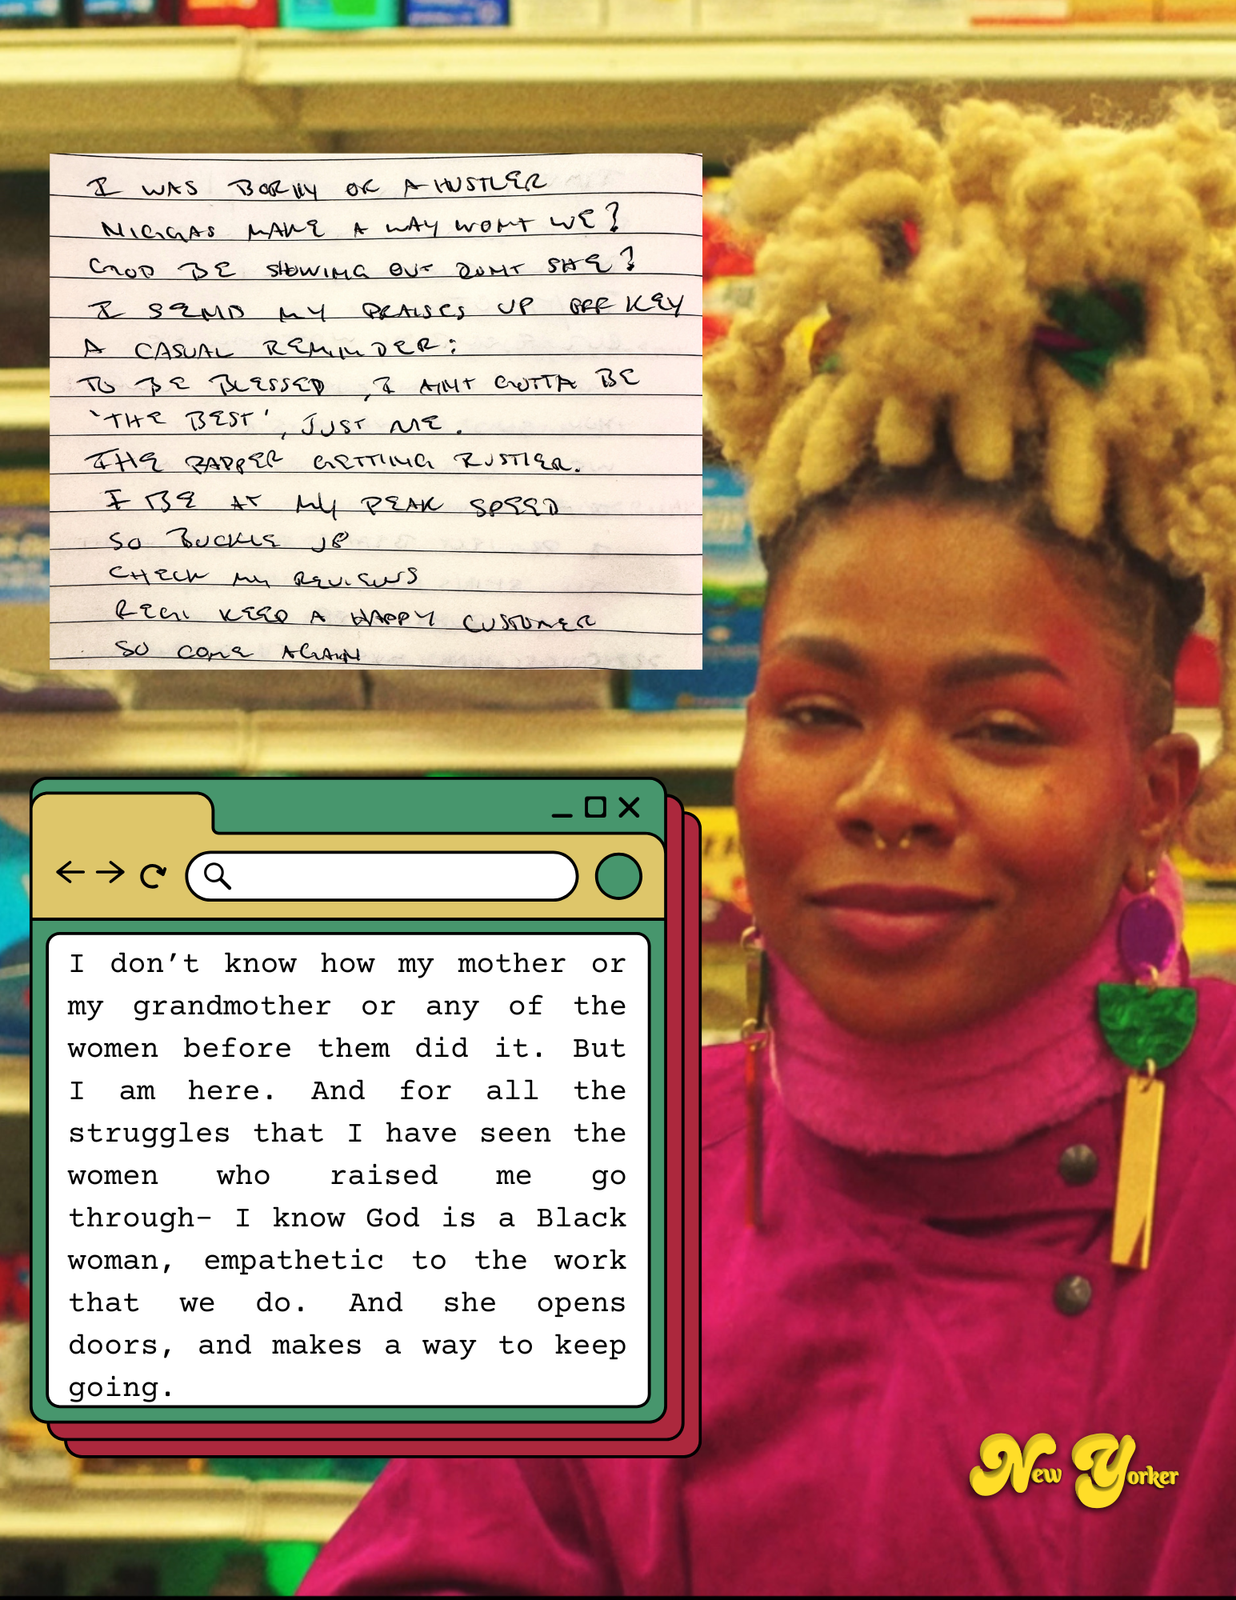 I WAS BORN OF A HUSTLER
NIGGAS MAKE A WAY WONT WE?
GOD BE SHOWING OUT DONT SHE?
I SEND MY PRAISES UP OFF KEY
A CASUAL REMINDER:
TO BE BLESSED, I AINT GOTTA BE
'THE BEST', JUST ME.
THE RAPPER GETTING RUSTIER.
I BE AT MY PEAK SPEED
SO BUCKLE UP
CHECK MY REVIEWS
KEEP A HAPPY CUSTOMER
SO COME AGAIN
I don't know how my mother or
my grandmother or any of the
women before them did it. But
I am here. And for all the
struggles that I have seen the
women who raised me go
through- I know God is a Black
woman, empathetic to the work
that we do. And she opens
doors, and makes a way to keep
going.
New Yorker